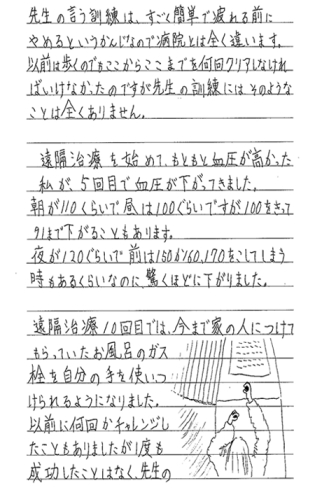 先生の言う訓練は、すごく簡単で疲れる前に
やめるというかんじなので病院とは全く違います。
以前は歩くのでもここからここまでを何回クリアしなけれ
ばいけなかったのですが先生の訓練にはそのような
ことは全くありません。
遠隔治療を始めて、もともと血圧が高かった
私が、5回目で血圧が下がってきました。
朝が110くらいで昼は100ぐらいですが100をきって
91まで下がることもあります。
夜が120ぐらいで前は150か160、170をこしてしまう
時もあるくらいなのに、驚くほどに下がりました。
遠隔治療10回目では、今まで家の人につけて
もらっていたお風呂のガス
栓を自分の手を使いつ
けられるようになりました。
以前に何回かチャレンジし
たこともありましたが1度も
成功したことはなく、先生の